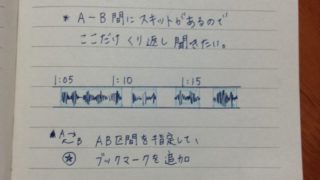 * A-B間にスキットがあるので
ここだけくり返し聞きたい。
1:05 1:10 1:15
A→B AB区間を指定して、
ブックマークを追加